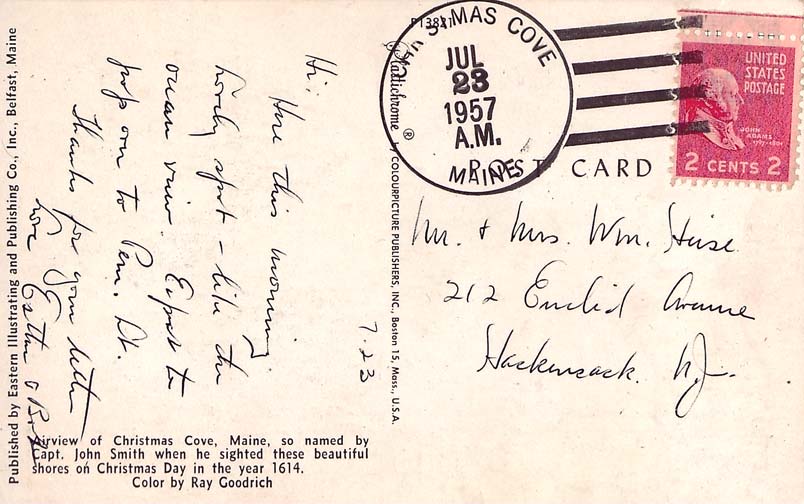 P13831
CHRISTMAS COVE
JUL
23
1957
A.M.
MAINE
UNITED
STATES
POSTAGE
JOHN
ADAMS
1797-1801
2 CENTS 2
POST CARD
Mr. & Mrs. Wm. Heise
212 Euclid Avenue
Hackensack. N.J.
7-23
Hi!
Here this morning.
Lovely spot - like the
ocean view. Expect to
pop over to Pem. Pt.
Thanks for your letter
Love Esther & Bob
Plastichrome ® by COLOURPICTURE PUBLISHERS, INC., Boston 15, Mass., U.S.A.
Published by Eastern Illustrating and Publishing Co., Inc., Belfast, Maine
Airview of Christmas Cove, Maine, so named by
Capt. John Smith when he sighted these beautiful
shores on Christmas Day in the year 1614.
Color by Ray Goodrich